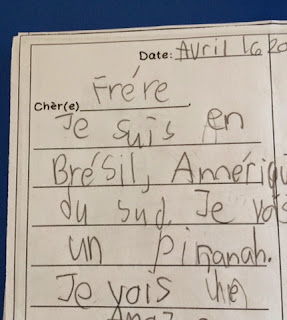 Date: Avril 16 20
Chèr(e) Frére,
Je suis en
Brésil, Amériqu
du sud. Je vois
un piranah.
Je vois